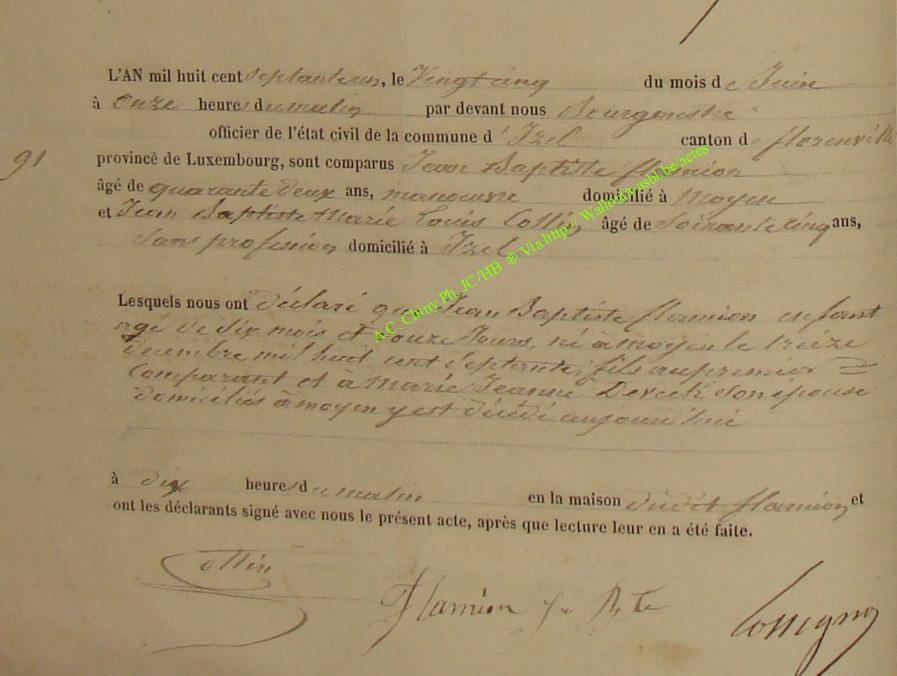 L'AN mil huit cent septanteun, le Vingt cinq du mois de Juin
à onze heures du matin par devant nous Bourgmestre
officier de l'état civil de la commune d'Izel canton de florenville
91
province de Luxembourg, sont comparus Jean Baptiste flamion
âgé de quarante deux ans, manoeuvre domicilié à Moyen
et Jean Baptiste Marie Louis Collin, âgé de Soixante cinq ans,
sans profession domicilié à Izel
Lesquels nous ont déclaré que Jean Baptiste flamion enfant
agé de six mois et douze Jours, né à moyen le treize
decembre mil huit cent septante, fils au premier
Comparant et à Marie Jeanne son épouse
domiciliés à moyen y est décédé aujourd'hui
à dix heures du matin en la maison dudit flamion et
ont les déclarants signé avec nous le présent acte, après que lecture leur en a été faite.
Collin
Flamion Jn Bte
A.C. Chiny Ph. JC/HB ® Via http://Wallonia-asbl.be/actes